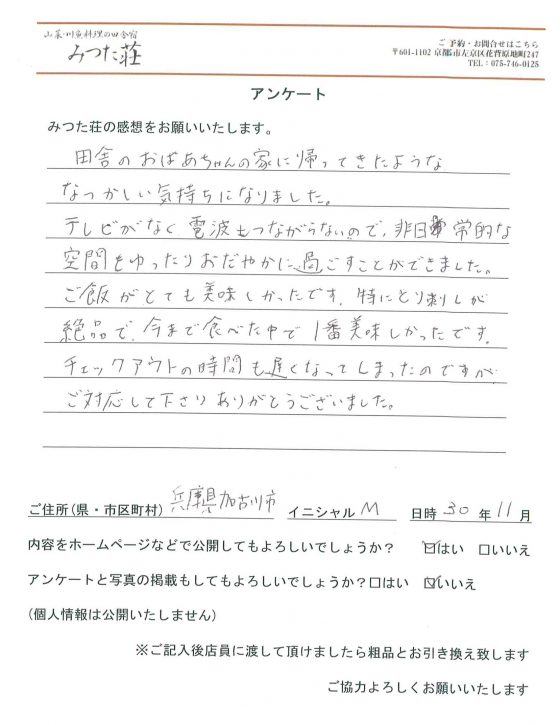 山菜・川魚料理の田舎宿
みつた荘
ご予約・お問合せはこちら
〒601-1102 京都市左京区花背原地町247
TEL：075-746-0125
アンケート
みつた荘の感想をお願いいたします。
田舎のおばあちゃんの家に帰ってきたような
なつかしい気持ちになりました。
テレビがなく電波もつながらないので、非日常的な
空間をゆったりおだやかに過ごすことができました。
ご飯がとても美味しかったです。特にとり刺しが
絶品で、今まで食べた中で1番美味しかったです。
チェックアウトの時間も遅くなってしまったのですが
ご対応して下さりありがとうございました。
ご住所(県・市区町村) 兵庫県加古川市 イニシャル M 日時 30 年 11 月
内容をホームページなどで公開してもよろしいでしょうか？ ☑はい □いいえ
アンケートと写真の掲載もしてもよろしいでしょうか？□はい ☑いいえ
(個人情報は公開いたしません)
※ご記入後店員に渡して頂けましたら粗品とお引き換え致します
ご協力よろしくお願いいたします